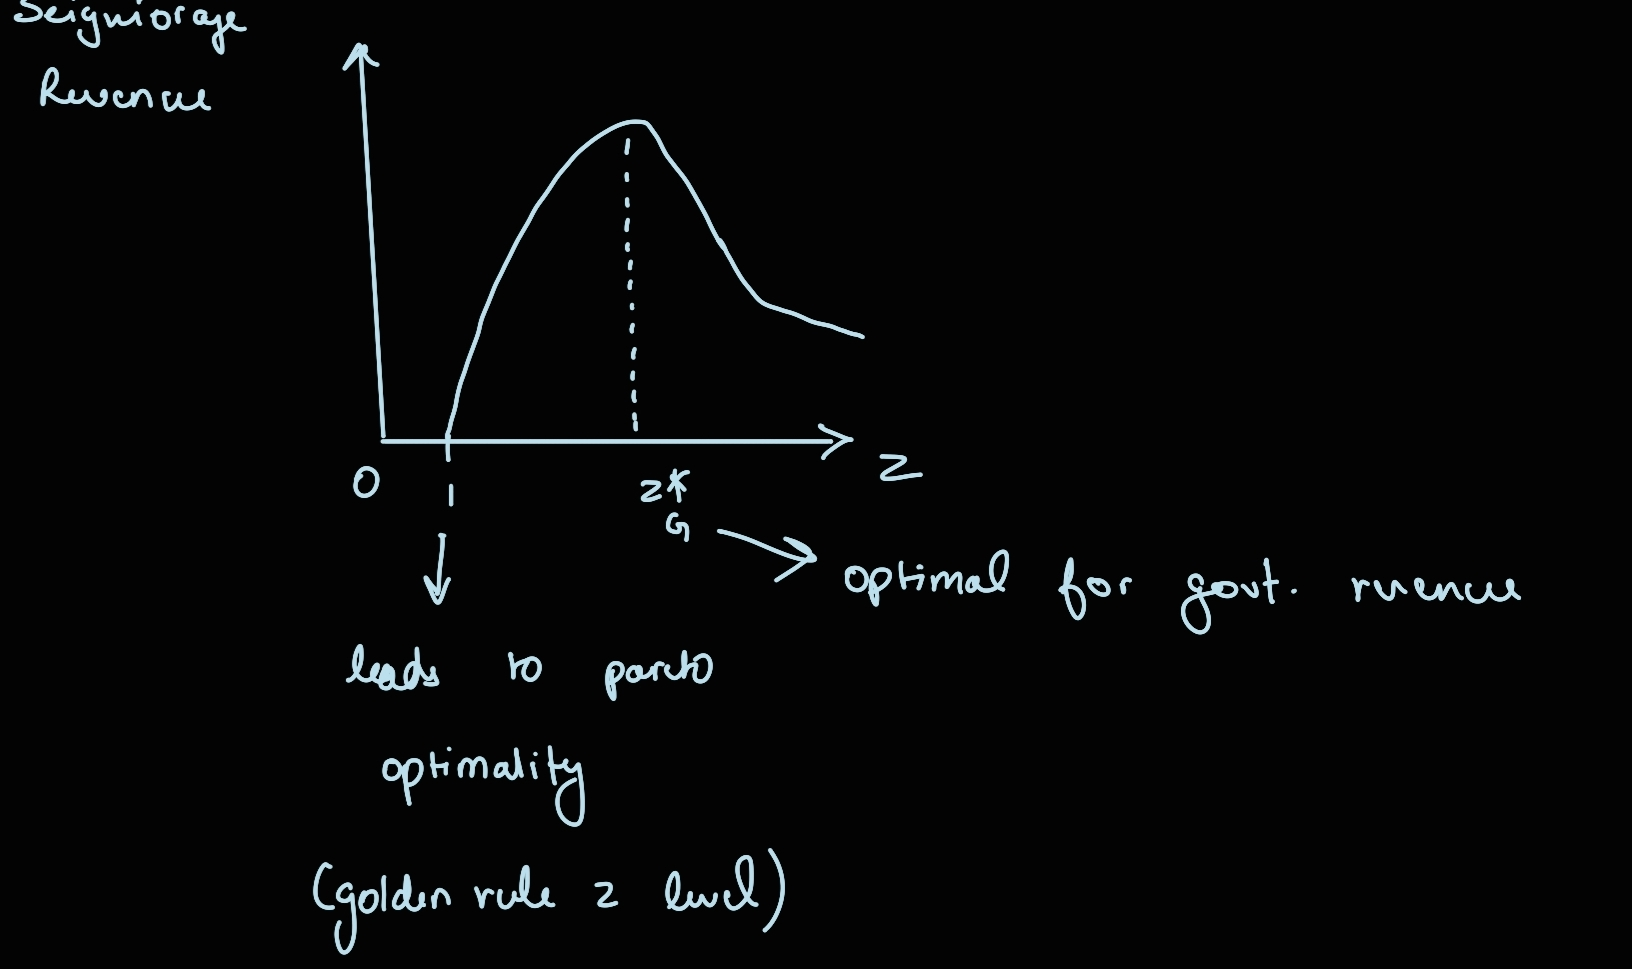 Seigniorage
Revenue
Z
0
1
z*
G
optimal for govt. revenue
leads to pareto
optimality
(golden rule z level)